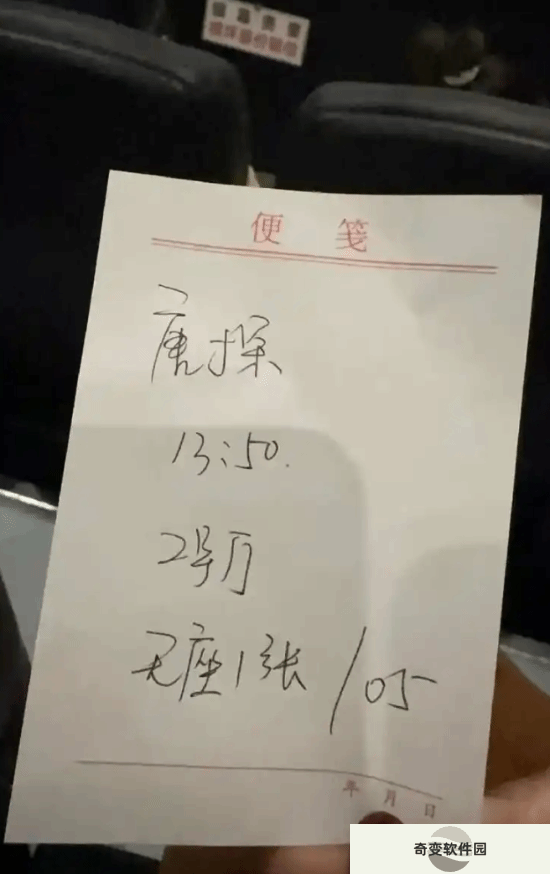 便 笺
唐探
13:50.
2号厅
无座1张/05
年 月 日
奇变软件园